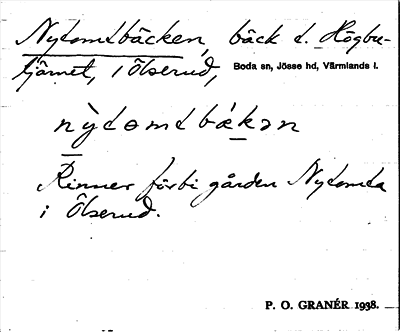 Nydomdbäcken, bäck t. Högbu-
tjärnet, i Ölserud,
Boda sn, Jösse hd, Värmlands l.
Rinner förbi gården Nydomda
i Ölserud.
P. O. GRANÉR 1938.